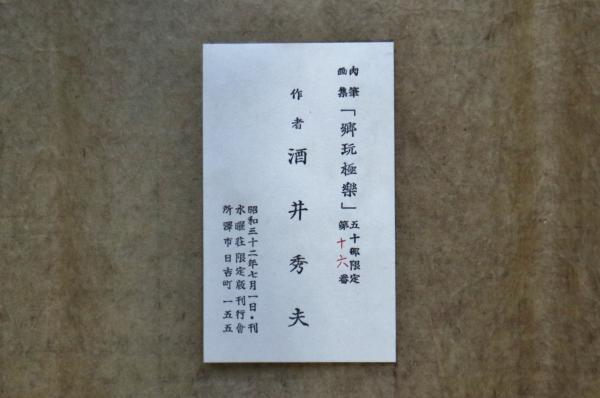 肉筆画集「郷玩極楽」五十部限定第十六番
作者 酒井秀夫
昭和三十二年七月一日・刊
水曜荘限定版刊行会
所澤市日吉町一五五